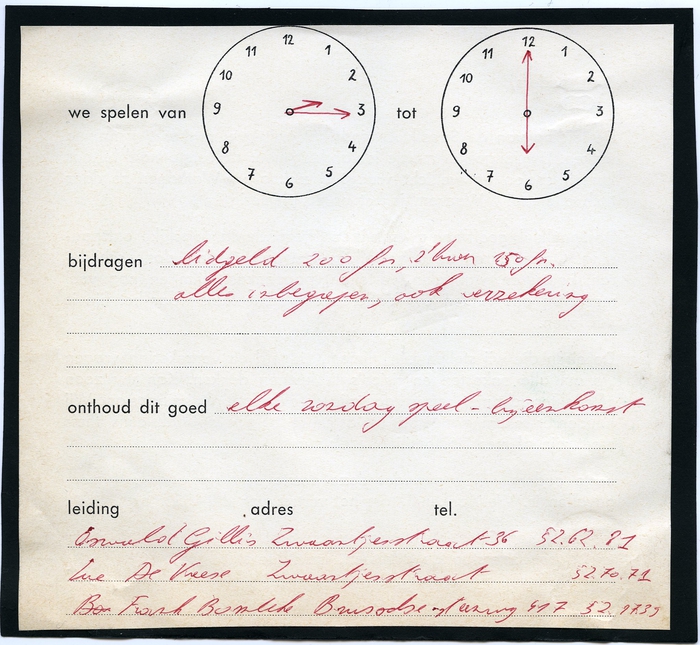 we spelen van 12 1 2 3 4 5 6 7 8 9 10 11 tot 12 1 2 3 4 5 6 7 8 9 10 11
bijdragen lidgeld 200 fr, 150 fr.
alles inbegrepen, ook verzekering
onthoud dit goed elke zondag speel-bijeenkomst
leiding adres tel.
Oswald Gillis Zwaantjesstraat 36 52.62.81
Luc De Vreese Zwaantjesstraat 52.70.71
Frank steenweg 417 52.